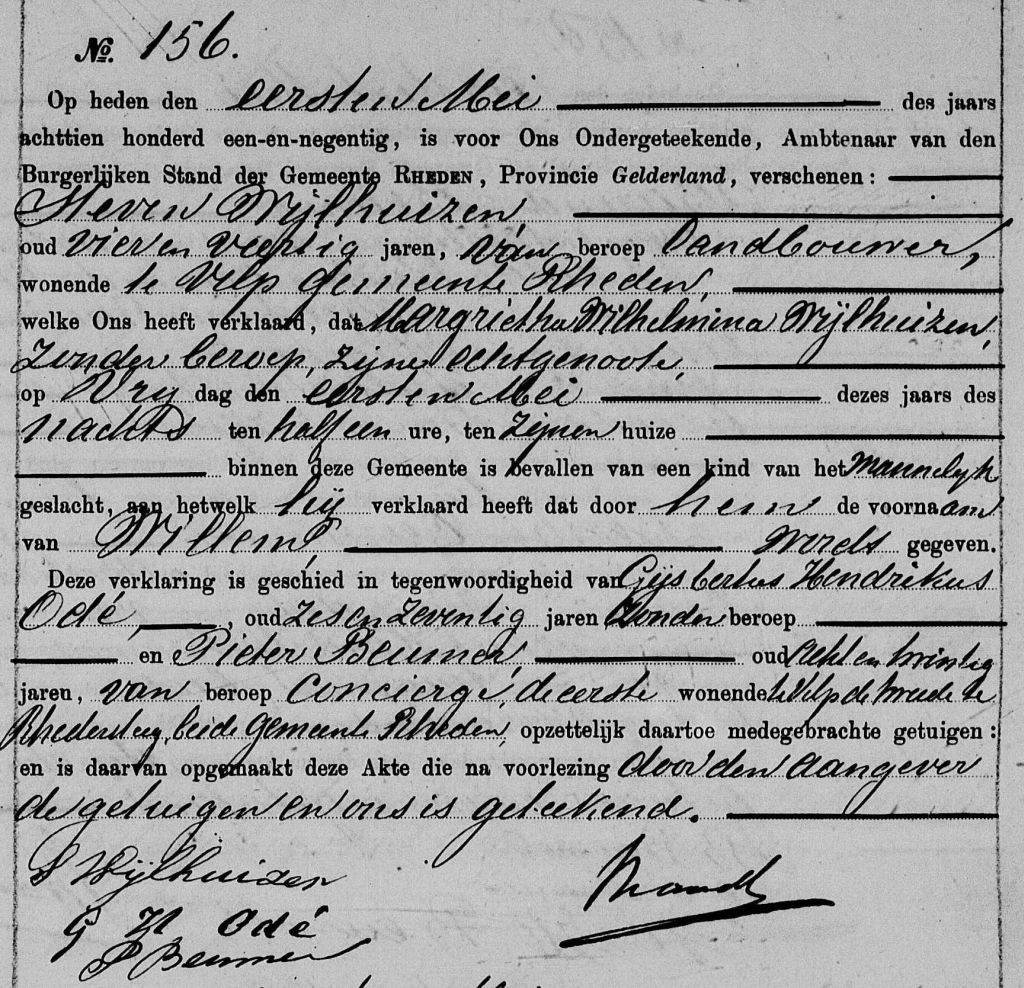 No. 156.
Op heden den eersten Mei des jaars
achttien honderd een-en-negentig, is voor Ons Ondergeteekende, Ambtenaar van den
Burgerlijken Stand der Gemeente RHEDEN, Provincie Gelderland, verschenen:
Steven Wijlhuizen
oud vier en veertig jaren, van beroep Landbouwer,
wonende te Velp gemeente Rheden,
welke Ons heeft verklaard, dat Margrietha Wilhelmina Wijlhuizen,
Zonder beroep, zijne echtgenoote,
op Vry dag den eersten Mei dezes jaars des
nachts ten half een ure, ten zijnen huize
binnen deze Gemeente is bevallen van een kind van het mannelyk
geslacht, aan hetwelk hij verklaard heeft dat door hem de voornaam
van Willem, wordt gegeven.
Deze verklaring is geschied in tegenwoordigheid van Gijsbertus Hendrikus
Odé, oud zes en zeventig jaren zonder beroep
en Pieter Beumer, oud acht en twintig
jaren, van beroep Concierge, de eerste wonende te Velp de tweede te
Rhedersteeg, beide gemeente Rheden, opzettelijk daartoe medegebrachte getuigen:
en is daarvan opgemaakt deze Akte die na voorlezing door den aangever
de getuigen en ons is geteekend.
S Wijlhuizen
G H Odé
P Beumer